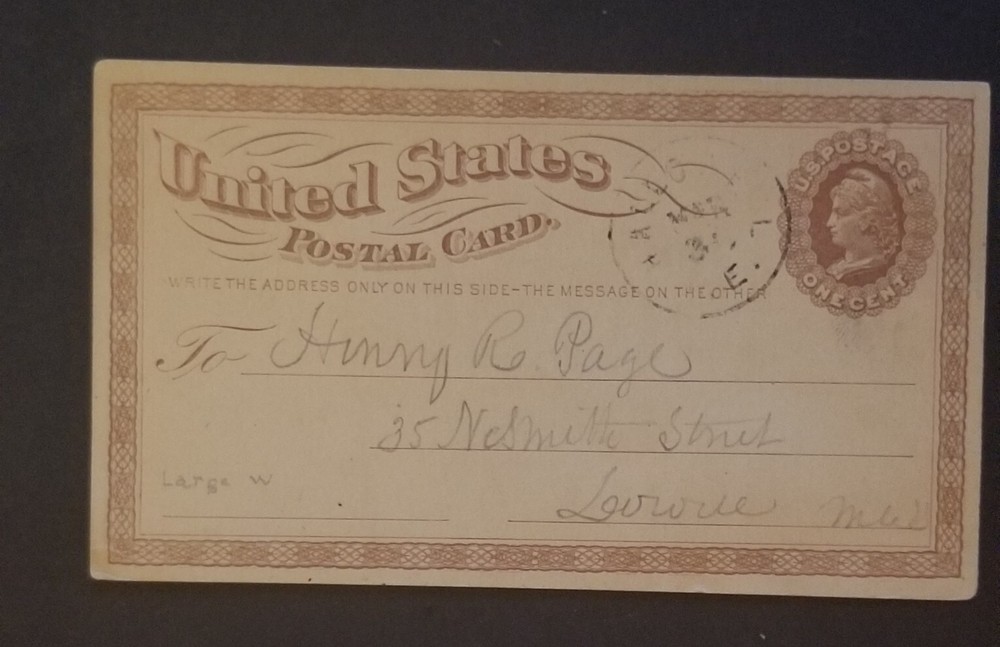 United States
POSTAL CARD.
U.S. POSTAGE
ONE CENT
WRITE THE ADDRESS ONLY ON THIS SIDE–THE MESSAGE ON THE OTHER
To Henry R. Page
35 Nesmith Street
Large W